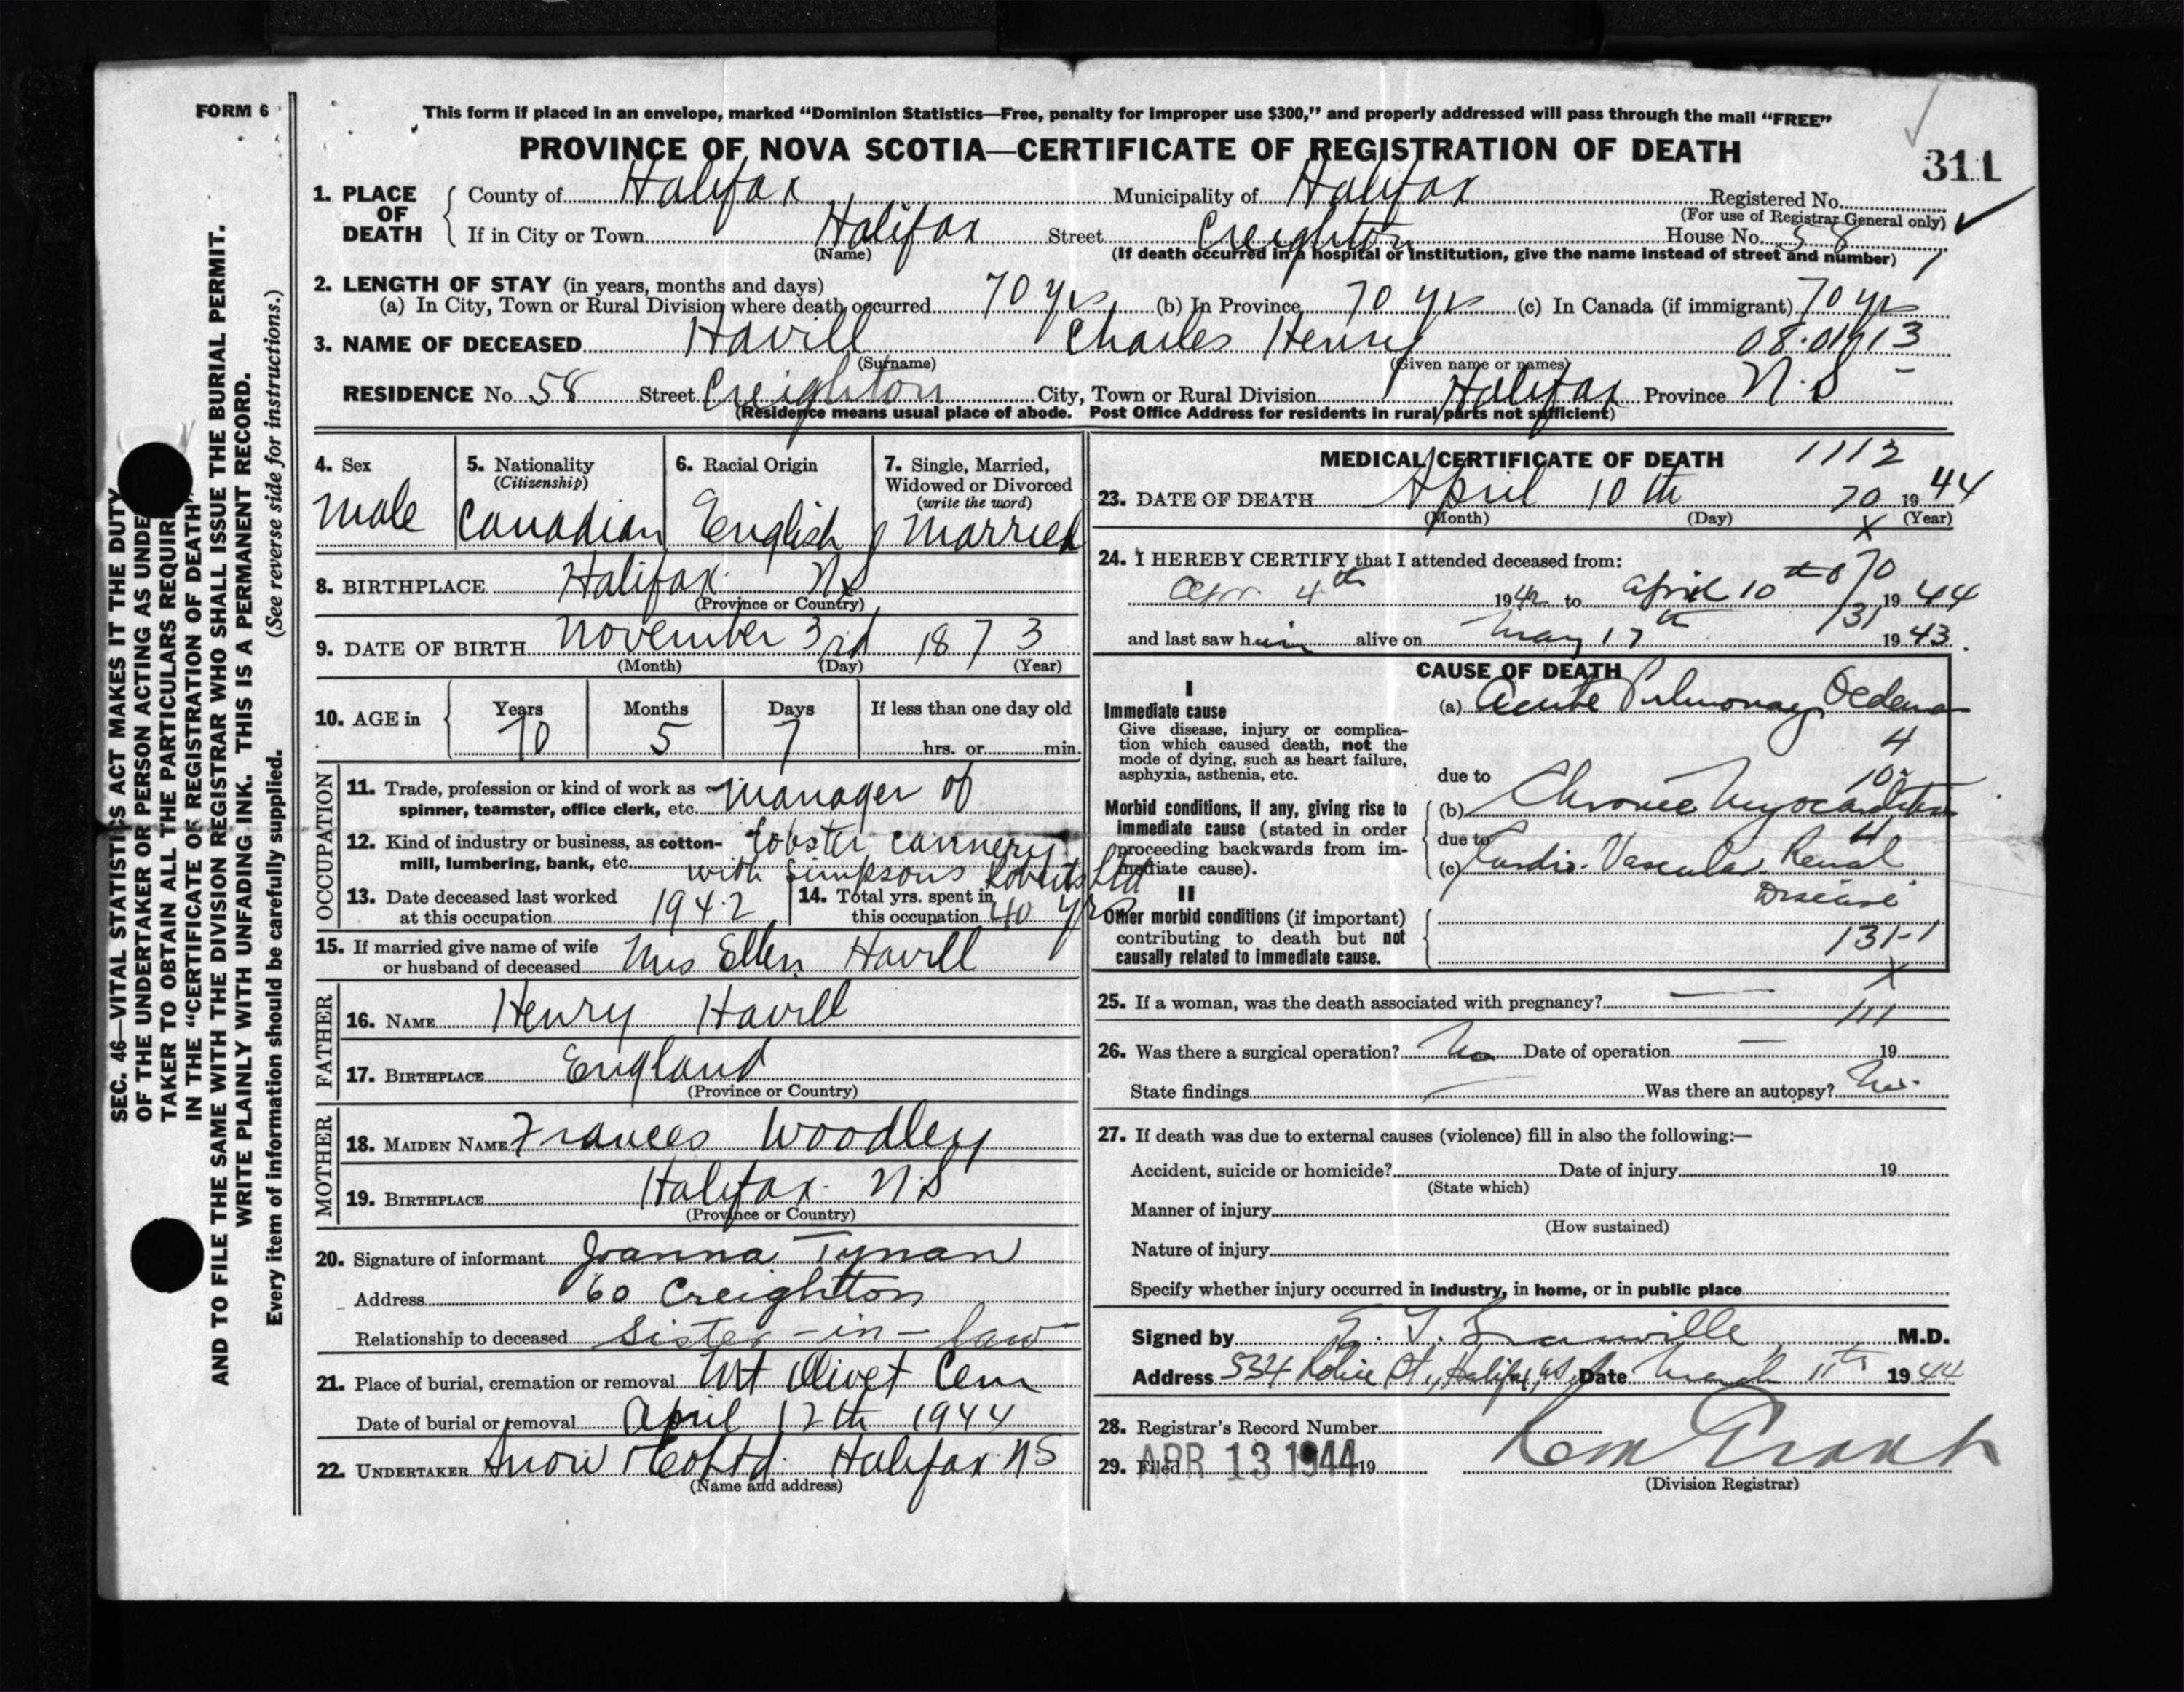 FORM 6
This form if placed in an envelope, marked "Dominion Statistics—Free, penalty for improper use $300," and properly addressed will pass through the mail "FREE"
PROVINCE OF NOVA SCOTIA—CERTIFICATE OF REGISTRATION OF DEATH
311
1. PLACE OF DEATH
County of Halifax Municipality of Halifax Registered No.
(For use of Registrar General only)
If in City or Town Halifax Street Creighton House No. 58
(Name) (If death occurred in a hospital or institution, give the name instead of street and number)
2. LENGTH OF STAY (in years, months and days)
(a) In City, Town or Rural Division where death occurred 70 yrs (b) In Province 70 yrs (c) In Canada (if immigrant) 70 yrs
3. NAME OF DECEASED Havill Charles Henry 08.01913
(Surname) (Given name or names)
RESIDENCE No. 58 Street Creighton City, Town or Rural Division Halifax Province N.S
(Residence means usual place of abode. Post Office Address for residents in rural parts not sufficient)
4. Sex
Male
5. Nationality
(Citizenship)
Canadian
6. Racial Origin
English
7. Single, Married,
Widowed or Divorced
(write the word)
Married
8. BIRTHPLACE Halifax NS
(Province or Country)
9. DATE OF BIRTH November 3rd 1873
(Month) (Day) (Year)
10. AGE in
Years Months Days If less than one day old
70 5 7 hrs. or min.
OCCUPATION
11. Trade, profession or kind of work as
spinner, teamster, office clerk, etc. Manager of
12. Kind of industry or business, as cotton-
mill, lumbering, bank, etc. Lobster cannery
with Simpsons Roberts Ltd
13. Date deceased last worked
at this occupation 1942
14. Total yrs. spent in
this occupation 40 yrs
15. If married give name of wife
or husband of deceased Mrs Ellen Havill
FATHER
16. NAME Henry Havill
17. BIRTHPLACE England
(Province or Country)
MOTHER
18. MAIDEN NAME Frances Woodley
19. BIRTHPLACE Halifax N.S
(Province or Country)
20. Signature of informant Joanna Tynan
Address 60 Creighton
Relationship to deceased Sister-in-law
21. Place of burial, cremation or removal Mt Olivet Cem
Date of burial or removal April 12th 1944
22. UNDERTAKER Snow & Co Ltd. Halifax NS
(Name and address)
MEDICAL CERTIFICATE OF DEATH 1112
23. DATE OF DEATH April 10th 70 1944
(Month) (Day) (Year)
X
24. I HEREBY CERTIFY that I attended deceased from:
70
Apr 4th 1942 to April 10th 1944
131
and last saw him alive on May 17th 1943.
CAUSE OF DEATH
I
Immediate cause
Give disease, injury or complica-
tion which caused death, not the
mode of dying, such as heart failure,
asphyxia, asthenia, etc.
(a) Acute Pulmonary Oedema
4
due to
10
Morbid conditions, if any, giving rise to
immediate cause (stated in order
proceeding backwards from im-
mediate cause).
(b) Chronic Myocarditis
due to
4
(c) Cardio-Vascular Renal
Disease
II
Other morbid conditions (if important)
contributing to death but not
causally related to immediate cause.
131-1
X
25. If a woman, was the death associated with pregnancy? —
111
26. Was there a surgical operation? No Date of operation — 19
State findings — Was there an autopsy? No.
27. If death was due to external causes (violence) fill in also the following:—
Accident, suicide or homicide? Date of injury 19
(State which)
Manner of injury
(How sustained)
Nature of injury
Specify whether injury occurred in industry, in home, or in public place
Signed by E. F. Granville M.D.
Address 534 Robie St., Halifax, N.S. Date March 11th 1944
28. Registrar's Record Number
29. Filed APR 13 1944 19
(Division Registrar)
SEC. 46—VITAL STATISTICS ACT MAKES IT THE DUTY
OF THE UNDERTAKER OR PERSON ACTING AS UNDER
TAKER TO OBTAIN ALL THE PARTICULARS REQUIR
IN THE "CERTIFICATE OF REGISTRATION OF DEATH"
AND TO FILE THE SAME WITH THE DIVISION REGISTRAR WHO SHALL ISSUE THE BURIAL PERMIT.
WRITE PLAINLY WITH UNFADING INK. THIS IS A PERMANENT RECORD.
Every item of information should be carefully supplied. (See reverse side for instructions.)